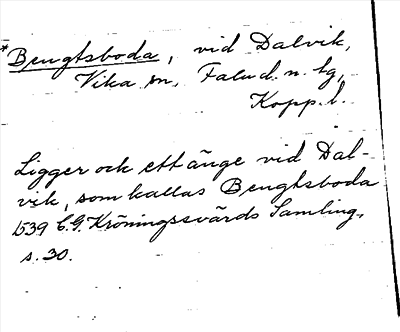 *Bengtsboda, vid Dalvik,
Vika sn, Falu d. n. tg,
Kopp. l.
Ligger ock ett änge vid Dal-
vik, som kallas Bengtsboda
1539 C.G. Kröningssvärds Samling,
s. 30.